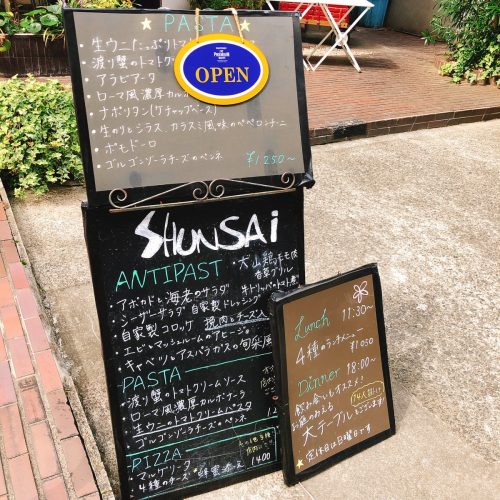 PASTA
・生ウニたっぷりトマト
・渡り蟹のトマトクリ
・アラビアータ
・ローマ風濃厚カルボ
・ナポリタン(ケチャップベース)
・生のりとシラス、カラスミ風味のペペロンチーニ
・ポモドーロ
・ゴルゴンゾーラチーズのペンネ
¥1250〜
PREMIUM
OPEN
SHUNSAi
ANTIPAST
・大山鶏モモ肉
香草グリル
・アボカドと海老のサラダ
・シーザーサラダ 自家製ドレッシング
・自家製コロッケ 挽肉とチーズ入
・エビとマッシュルームのアヒージョ
・キャベツとアスパラガスの
PASTA
・渡り蟹のトマトクリームソース
・ローマ風濃厚カルボナーラ
・生ウニのトマトクリームパスタ
・ゴルゴンゾーラチーズのペンネ
PIZZA
・マルゲリータ
・4種のチーズ
1400
Lunch
11:30〜
4種のランチメニュー
¥1050
Dinner
18:00〜
飲み会にもオススメ!
お庭のみえる
大テーブルもございます!
☆定休日は日曜日です